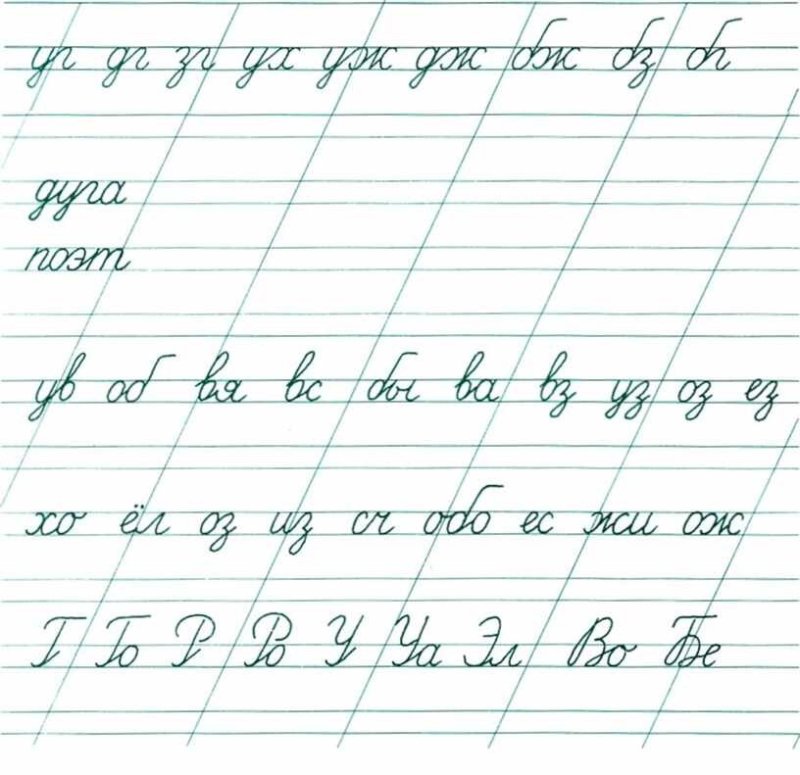 уг дг зг ух уж дж бж бз бг
дуга
поэт
ув об вя вс бы ва вз уз оз ез
хо ёл оз из сч обо ес жи ож
Г Го Р Ро У Уа Эл Во Бе